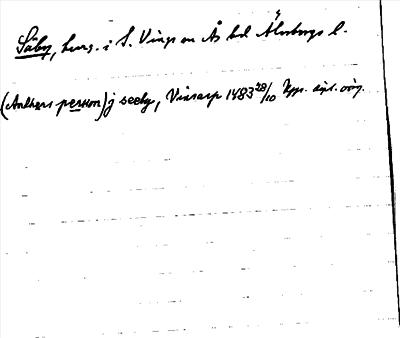 Säby, herg. i S. Vings sn Ås hd Älvsborgs l.
(Anders person) j seeby, Vinsarp 1483 28/10 dipl.